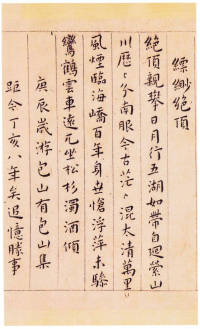 縹緲絶頂
絶頂親攀日月行五湖如帶自迴縈山
川歷〻分南服今古茫〻混太清萬里
風煙臨海嶠百年身世愴浮萍未驂
鸞鶴雲車遠兀坐松杉濁酒傾
庚辰歲游包山有包山集
距今丁亥八年矣追憶勝事